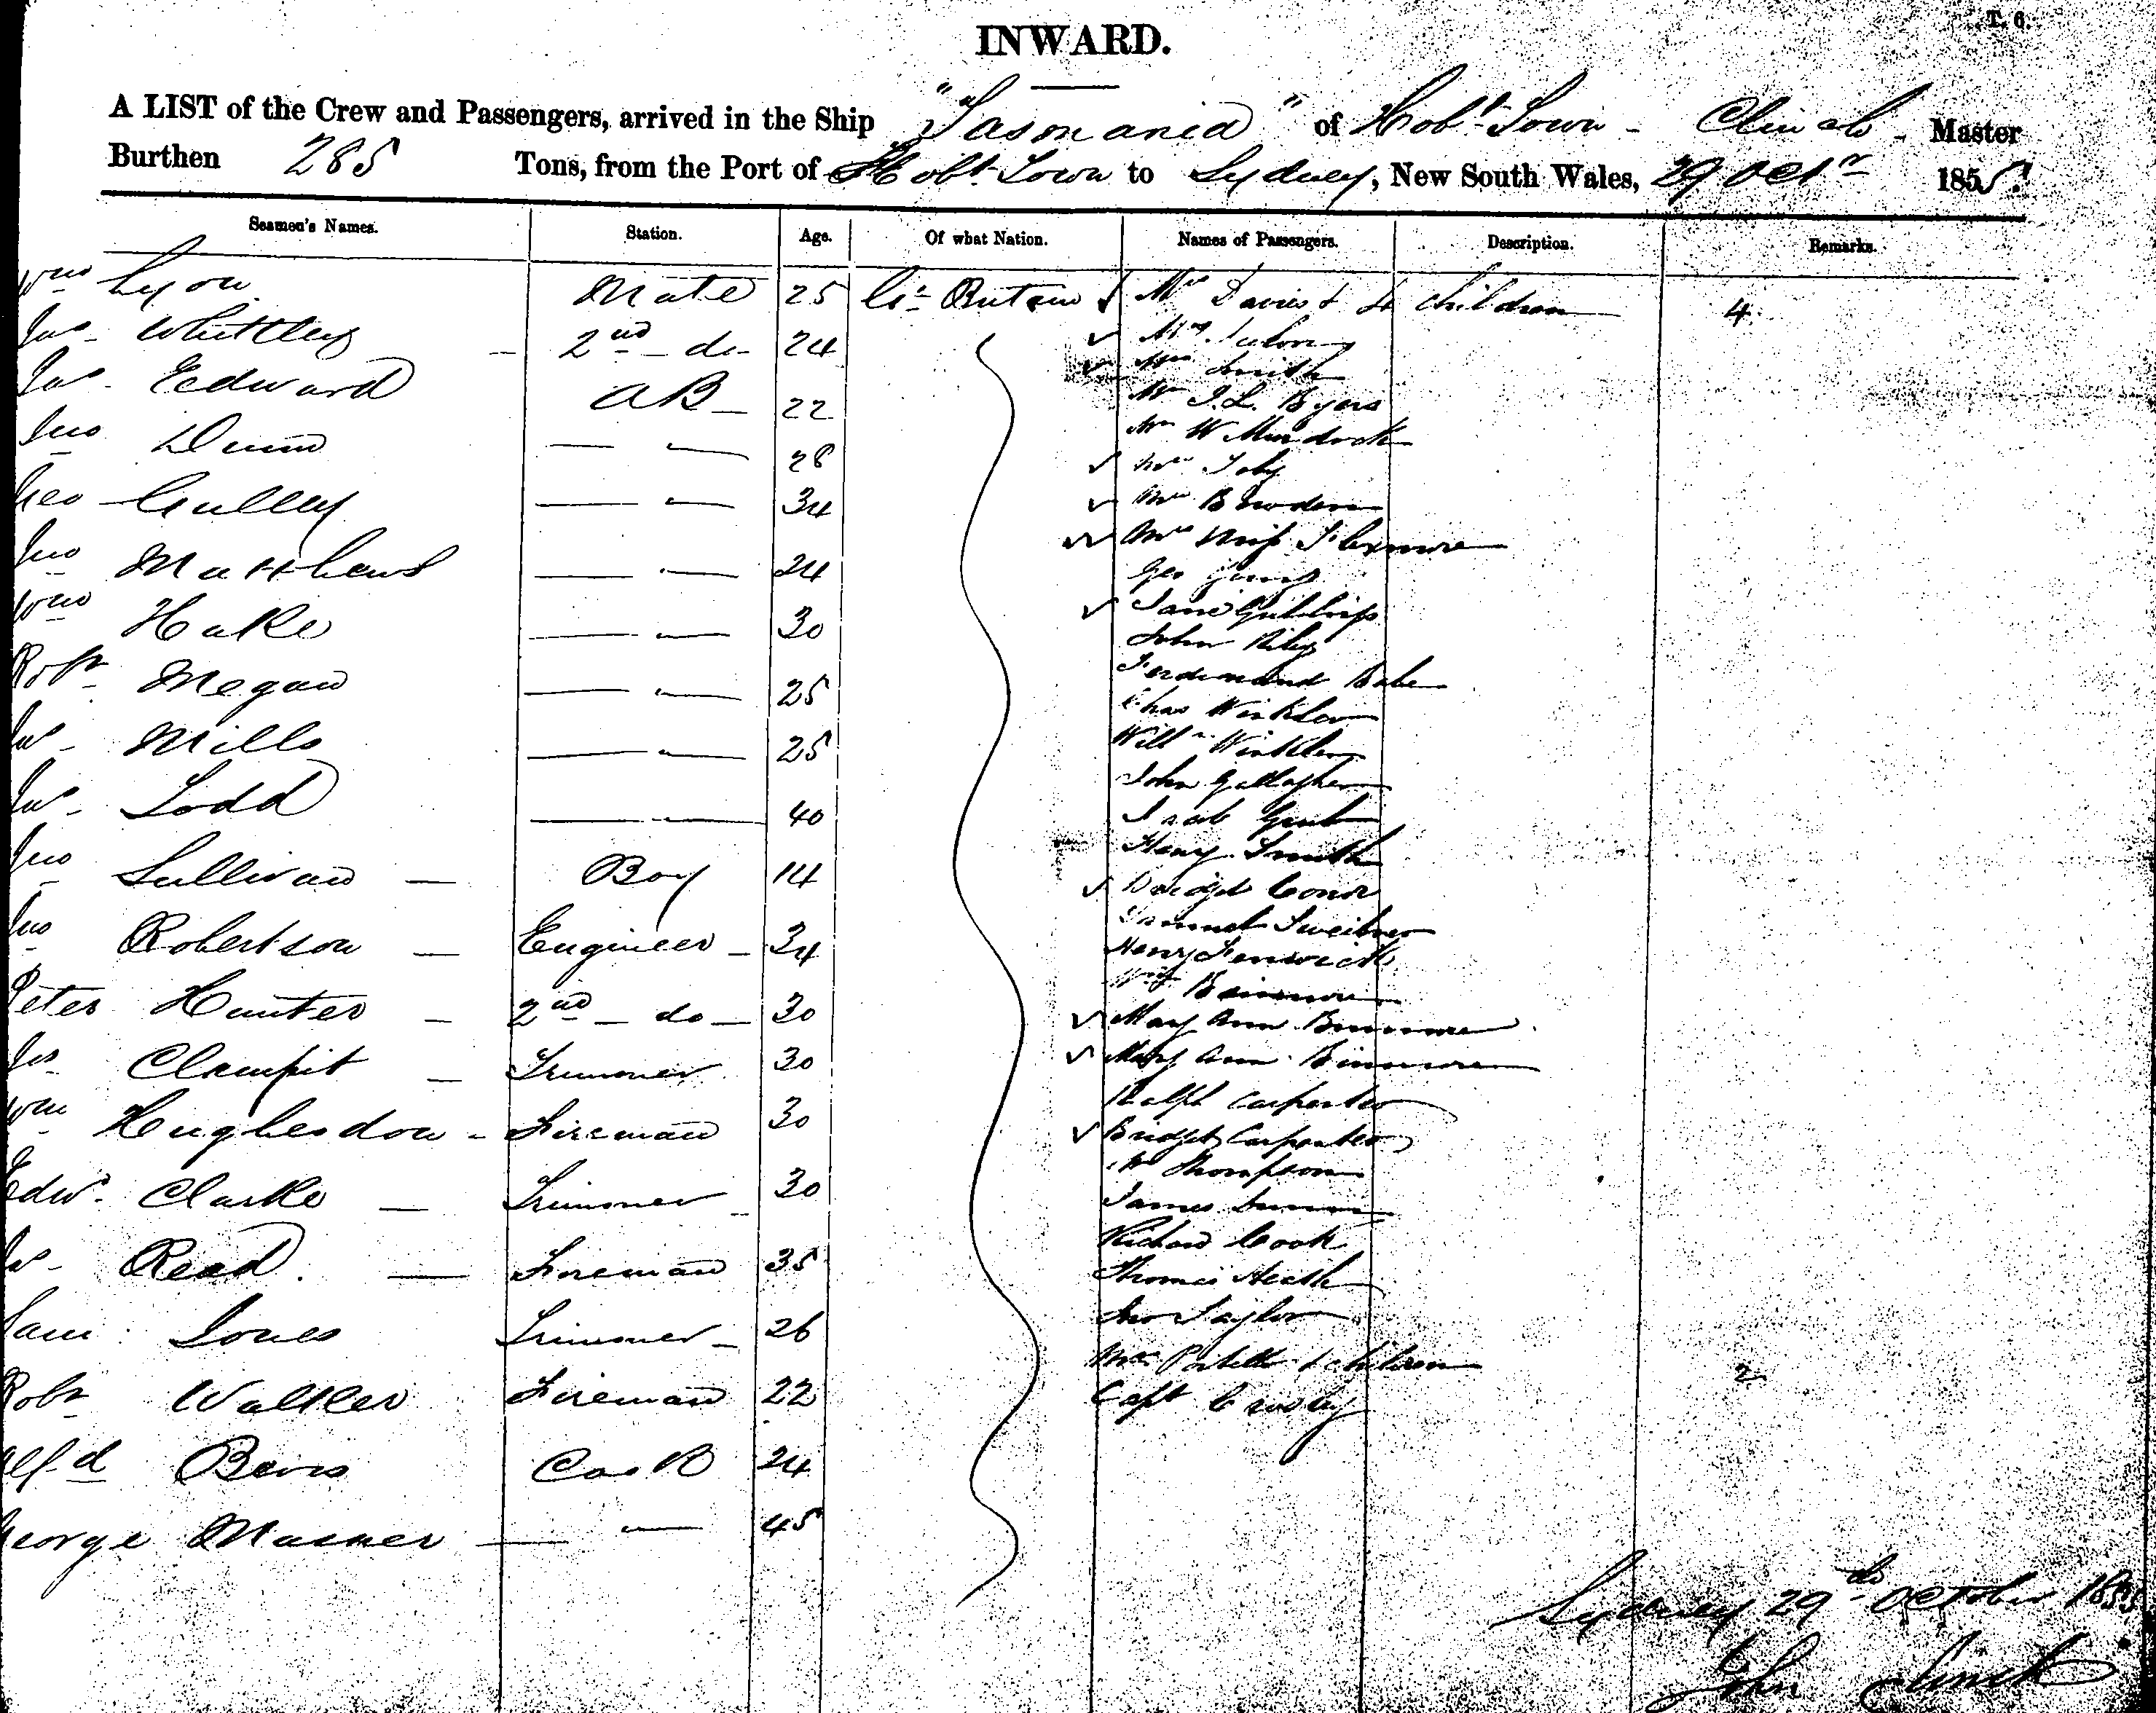 T. 6.
INWARD.
A LIST of the Crew and Passengers, arrived in the Ship "Tasmania" of Hobt Town - Clinch - Master
Burthen 285 Tons, from the Port of Hobt Town to Sydney, New South Wales, 29 Octr 1855.
Seamen's Names. Station. Age. Of what Nation. Names of Passengers. Description. Remarks.
Wm Lyon Mate 25 Gt Britain Mrs Davies & 4 children 4
Jas Whittley 2nd do 24 Mrs
Jas Edward AB 22 Mrs Smith
Mr J. L. Byers
Jno Dunn — " 28 Mr W Murdock
Mrs Toby
Geo Gulley — " 34 Mrs Bowden
Jno Matthews — " 24 Mrs Miss Flexmore
Geo Young
Wm Hake — " 30 Jane
John Riley
Robt Megaw — " 25 Ferdinand Babe
Chas Winkler
Jas Mills — " 25 Willm Winkler
John Gallagher
Jas Todd — 40 Isaab Grub
Henry Smith
Jno Sullivan — Boy 14 Bridget Conor
Samuel
Jno Robertson — Engineer - 34 Henry Fenwick
Wm Binmore
Peter Hunter — 2nd do — 30 Mary Ann Binmore
Jas Clampit — Trimmer 30 Mary Ann Binmore
Ralph Carpenter
Wm Hughesdon - Fireman 30 Bridget Carpenter
Mr Thompson
Edwd Clarke — Trimmer 30 James
Richard Cook
Js Read. — Fireman 35 Thomas Heath
Sam Jones Trimmer 26 Jno Taylor
Mrs & children 2
Robt Walker Fireman 22 Capt Crosby
Alfd Bevis Cook 24
George Masner — " 45
Sydney 29th October 1855
John Clinch